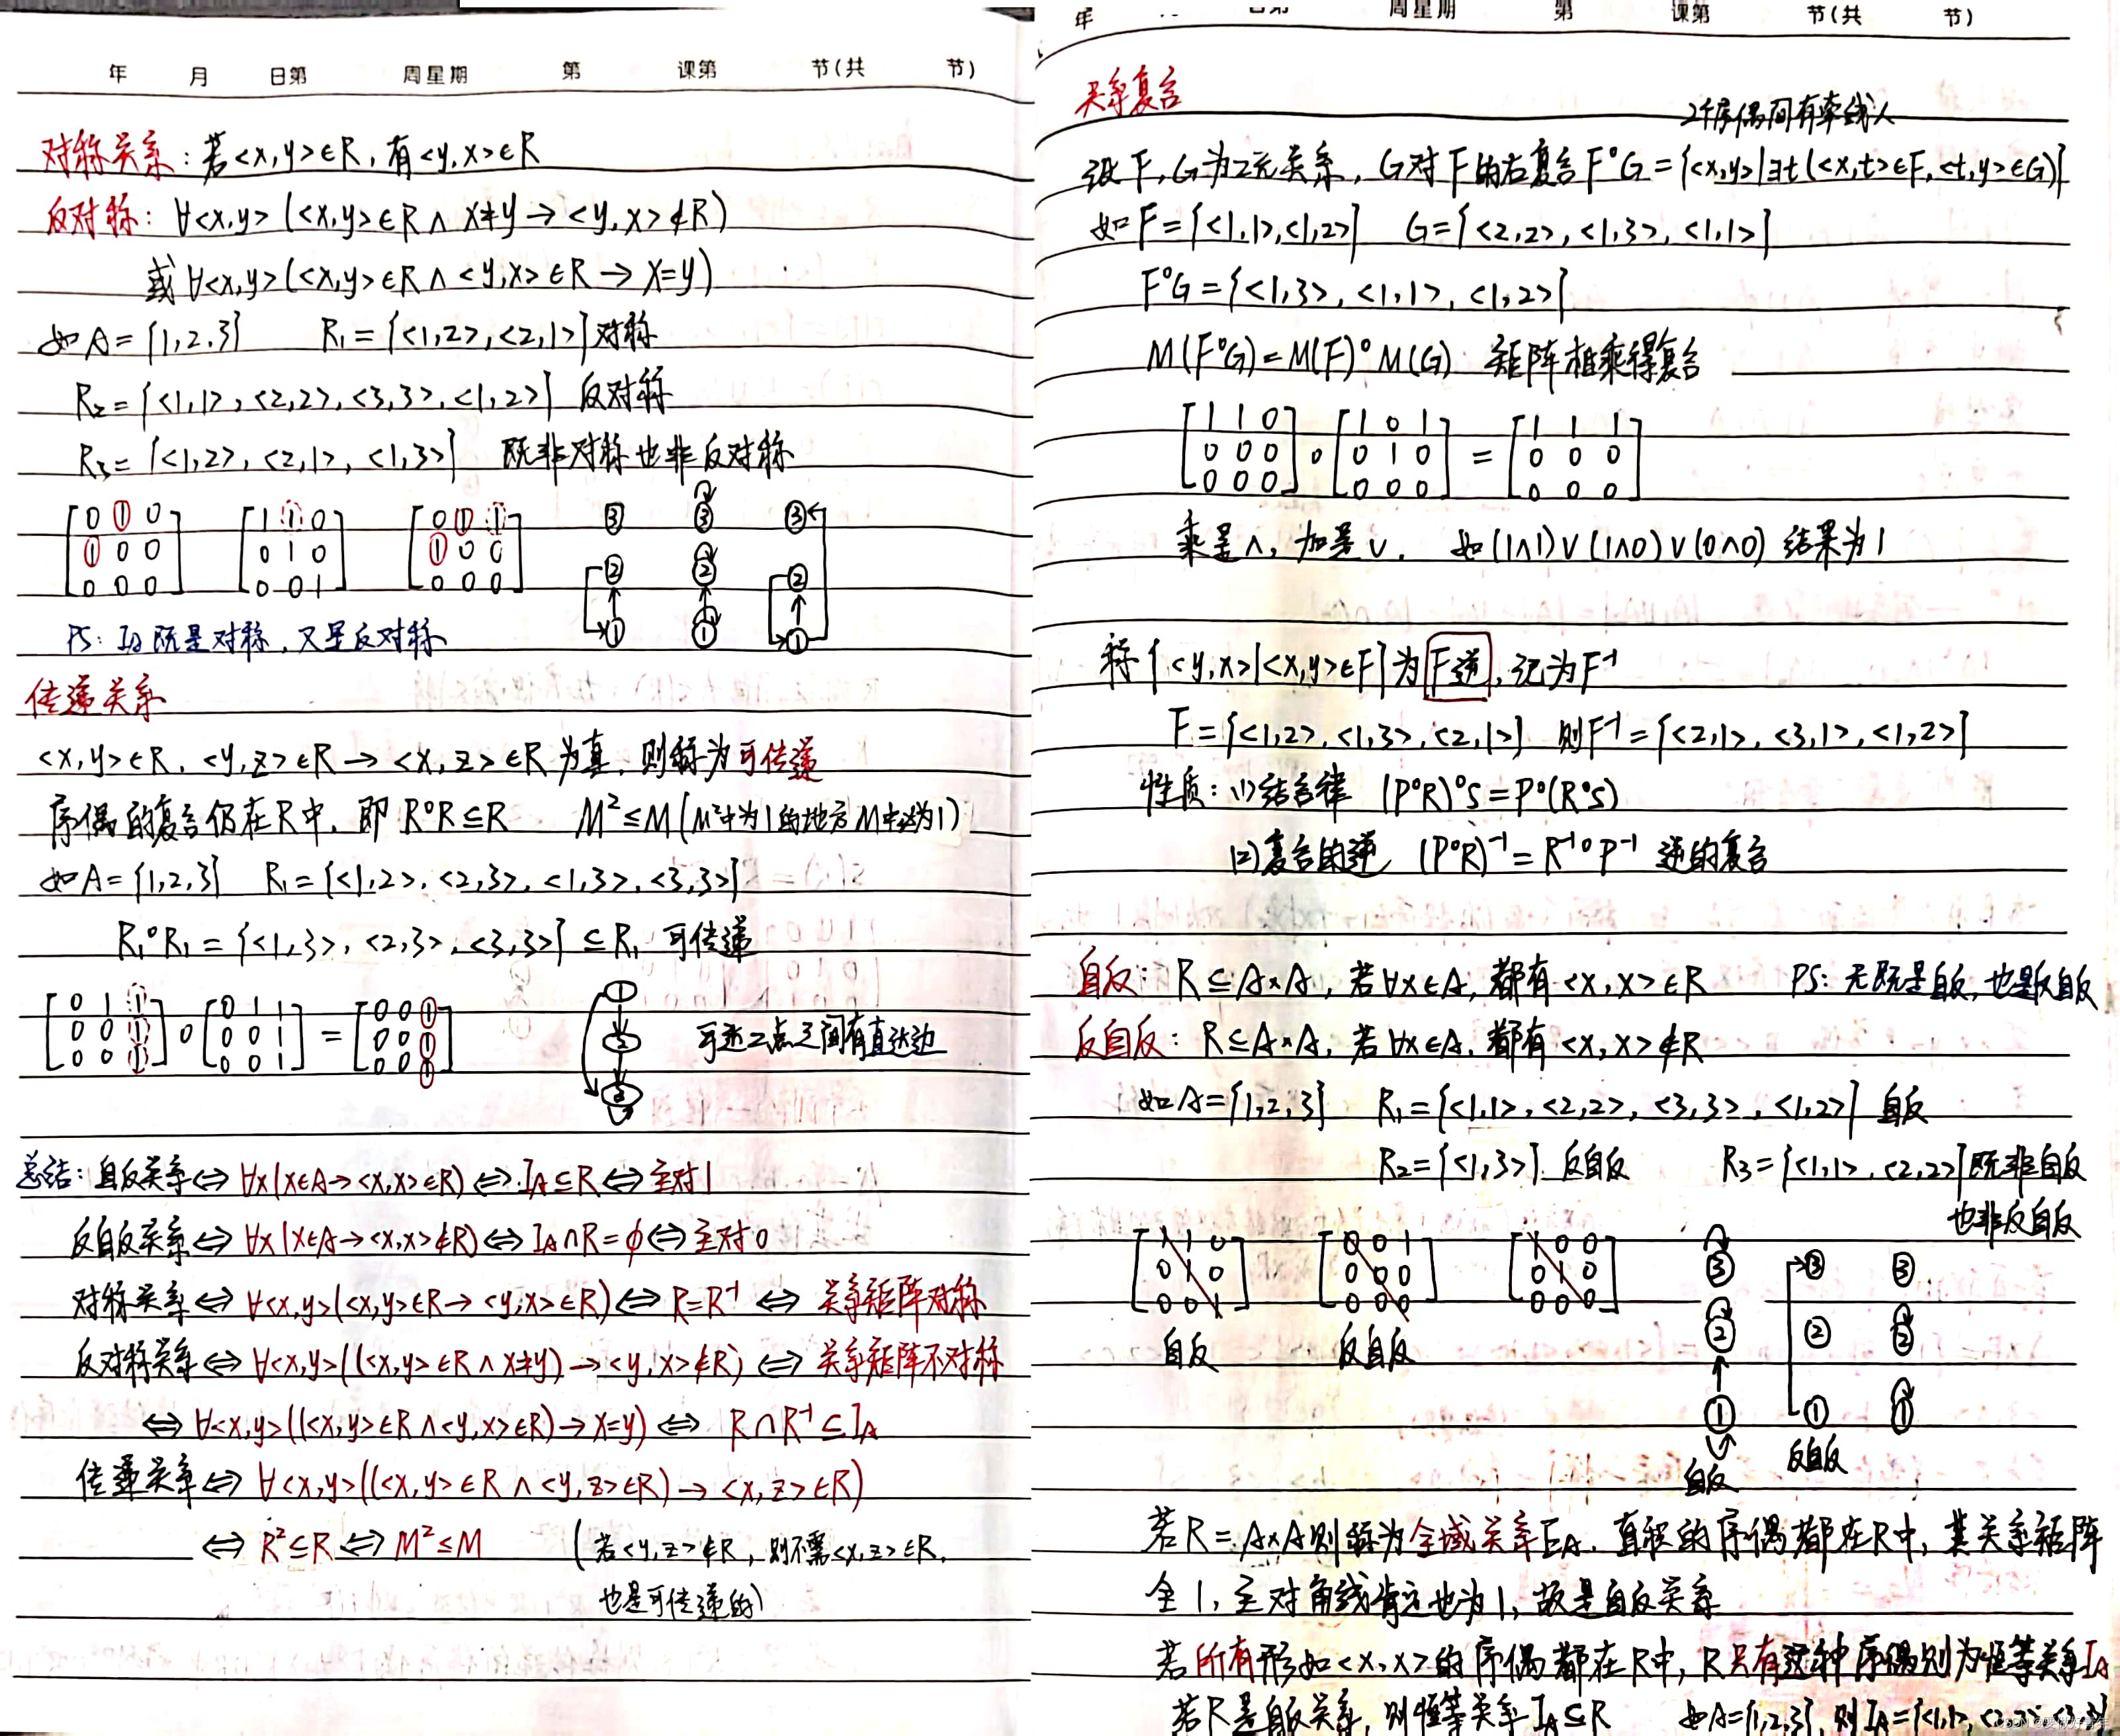 年 月 日第 周星期 第 课第 节(共 节)
对称关系：若<x,y>∈R，有<y,x>∈R
反对称：∀<x,y>(<x,y>∈R∧x≠y→<y,x>∉R)
或∀<x,y>(<x,y>∈R∧<y,x>∈R→x=y)
如A={1,2,3} R₁={<1,2>,<2,1>}对称
R₂={<1,1>,<2,2>,<3,3>,<1,2>} 反对称
R₃={<1,2>,<2,1>,<1,3>} 既非对称也非反对称
0 1 0 1 1 0 0 1 1 ③ ③ ③
1 0 0 0 1 0 1 0 0 ② ② ②
0 0 0 0 0 1 0 0 0 ① ① ①
PS：I_A既是对称，又是反对称
传递关系
<x,y>∈R，<y,z>∈R→<x,z>∈R为真，则称为可传递
序偶的复合仍在R中，即R°R⊆R M²≤M(M²中为1的地方M中必为1)
如A={1,2,3} R₁={<1,2>,<2,3>,<1,3>,<3,3>}
R₁°R₁={<1,3>,<2,3>,<3,3>}⊆R₁ 可传递
0 1 1 0 1 1 0 0 1 ①
0 0 1 ∘ 0 0 1 = 0 0 1 ② 可达二点之间有直达边
0 0 1 0 0 1 0 0 1 ③
总结：自反关系⇔∀x(x∈A→<x,x>∈R)⇔I_A⊆R⇔主对1
反自反关系⇔∀x(x∈A→<x,x>∉R)⇔I_A∩R=∅⇔主对0
对称关系⇔∀<x,y>(<x,y>∈R→<y,x>∈R)⇔R=R⁻¹⇔关系矩阵对称
反对称关系⇔∀<x,y>((<x,y>∈R∧x≠y)→<y,x>∉R)⇔关系矩阵不对称
⇔∀<x,y>((<x,y>∈R∧<y,x>∈R)→x=y)⇔R∩R⁻¹⊆I_A
传递关系⇔∀<x,y>((<x,y>∈R∧<y,z>∈R)→<x,z>∈R)
⇔R²⊆R⇔M²≤M (若<y,z>∉R，则不需<x,z>∈R，
也是可传递的)
年 日第 周星期 第 课第 节(共 节)
关系复合
2个序偶间有牵线人
设F，G为2元关系，G对F的右复合F°G={<x,y>|∃t(<x,t>∈F,<t,y>∈G)}
如F={<1,1>,<1,2>} G={<2,2>,<1,3>,<1,1>}
F°G={<1,3>,<1,1>,<1,2>}
M(F°G)=M(F)°M(G) 矩阵相乘得复合
1 1 0 1 0 1 1 1 1
0 0 0 ∘ 0 1 0 = 0 0 0
0 0 0 0 0 0 0 0 0
乘是∧，加是∨. 如(1∧1)∨(1∧0)∨(0∧0)结果为1
称{<y,x>|<x,y>∈F}为F逆，记为F⁻¹
F={<1,2>,<1,3>,<2,1>} 则F⁻¹={<2,1>,<3,1>,<1,2>}
性质：(1)结合律 (P°R)°S=P°(R°S)
(2)复合的逆 (P°R)⁻¹=R⁻¹°P⁻¹ 逆的复合
自反：R⊆A×A，若∀x∈A，都有<x,x>∈R PS：无既是自反，也是反自反
反自反：R⊆A×A，若∀x∈A，都有<x,x>∉R
如A={1,2,3} R₁={<1,1>,<2,2>,<3,3>,<1,2>} 自反
R₂={<1,3>} 反自反 R₃={<1,1>,<2,2>}既非自反
也非反自反
1 1 0 0 0 1 1 0 0 ③ ③ ③
0 1 0 0 0 0 0 1 0 ② ② ②
0 0 1 0 0 0 0 0 0 ① ① ①
自反 反自反
自反 反自反
若R=A×A则称为全域关系E_A.直积的序偶都在R中，其关系矩阵
全1，主对角线肯定也为1，故是自反关系
若所有形如<x,x>的序偶都在R中，R只有这种序偶则为恒等关系I_A
若R是自反关系，则恒等关系I_A⊆R 如A={1,2,3},则I_A={<1,1>